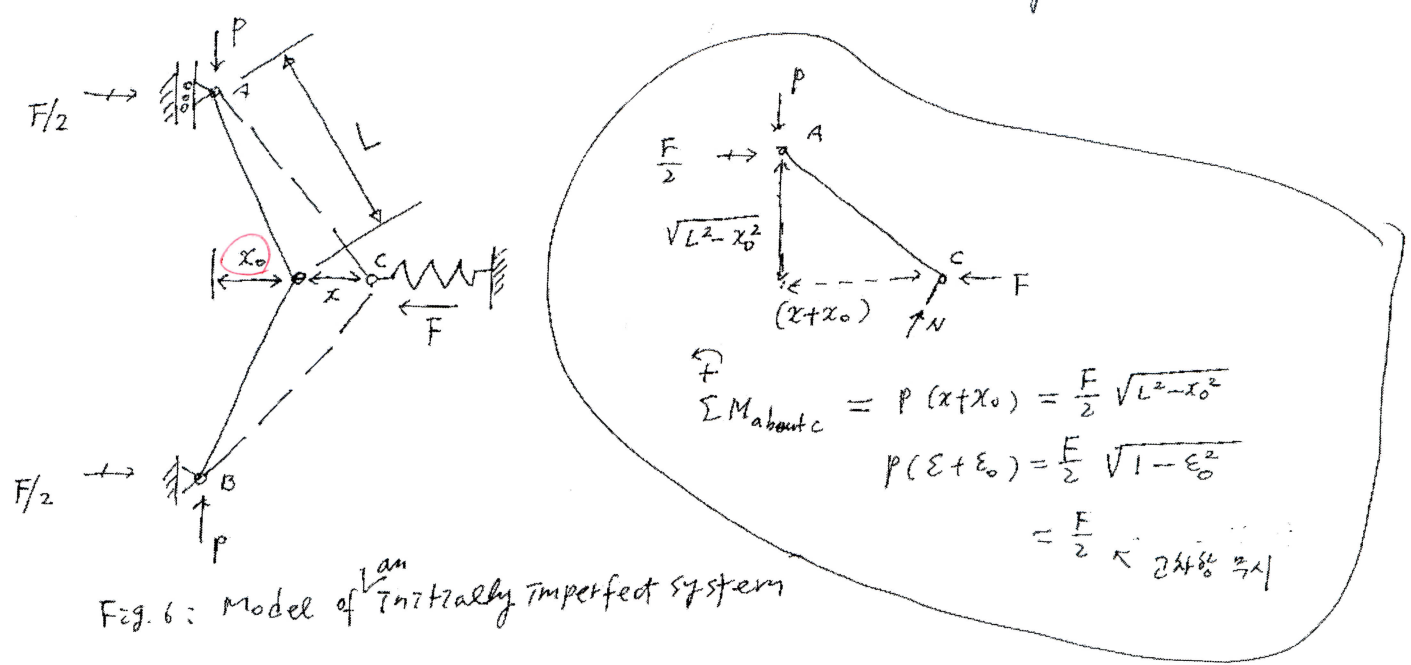 P
A
F/2
L
x₀
x
C
F
F/2
B
P
Fig. 6 : Model of an initially imperfect system
P
A
F/2
√L²-x₀²
C
F
(x+x₀)
N
+
ΣM about c = P (x+x₀) = F/2 √L²-x₀²
P(ε+ε₀) = F/2 √1-ε₀²
= F/2 ↖ 고차항 무시